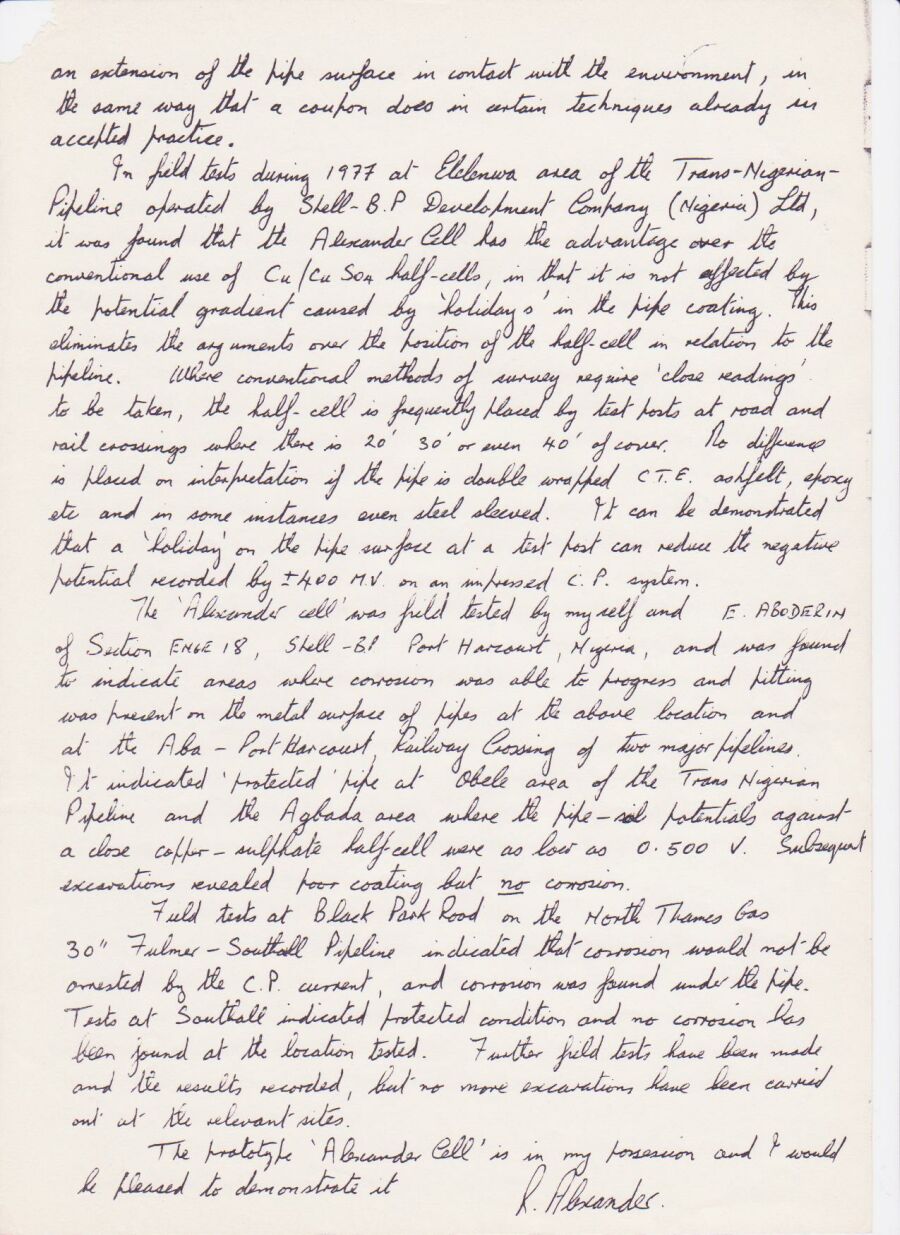 an extension of the pipe surface in contact with the environment, in
the same way that a coupon does in certain techniques already in
accepted practice.
In field tests during 1977 at Elelenwa area of the Trans-Nigerian-
Pipeline operated by Shell-B.P Development Company (Nigeria) Ltd,
it was found that the Alexander Cell has the advantage over the
conventional use of Cu/CuSO4 half-cells, in that it is not affected by
the potential gradient caused by 'holiday's' in the pipe coating. This
eliminates the arguments over the position of the half-cell in relation to the
pipeline. Where conventional methods of survey require 'close readings'
to be taken, the half-cell is frequently placed by test posts at road and
rail crossings where there is 20' 30' or even 40' of cover. No difference
is placed on interpretation if the pipe is double wrapped C.T.E. ashfelt, epoxy
etc and in some instances even steel sleeved. It can be demonstrated
that a 'holiday' on the pipe surface at a test post can reduce the negative
potential recorded by ±400 M.V. on an impressed C.P. system.
The 'Alexander cell' was field tested by myself and E. ABODERIN
of Section ENGE 18, Shell-BP Port Harcourt, Nigeria, and was found
to indicate areas where corrosion was able to progress and pitting
was present on the metal surface of pipes at the above location and
at the Aba - Port Harcourt, Railway Crossing of two major pipelines.
It indicated 'protected' pipe at Obele area of the Trans Nigerian
Pipeline and the Agbada area where the pipe-soil potentials against
a close copper-sulphate half-cell were as low as 0.500 V. Subsequent
excavations revealed poor coating but no corrosion.
Field tests at Black Park Road on the North Thames Gas
30" Fulmer-Southall Pipeline indicated that corrosion would not be
arrested by the C.P. current, and corrosion was found under the pipe.
Tests at Southall indicated protected condition and no corrosion has
been found at the location tested. Further field tests have been made
and the results recorded, but no more excavations have been carried
out at the relevant sites.
The prototype 'Alexander Cell' is in my possession and I would
be pleased to demonstrate it
R. Alexander.